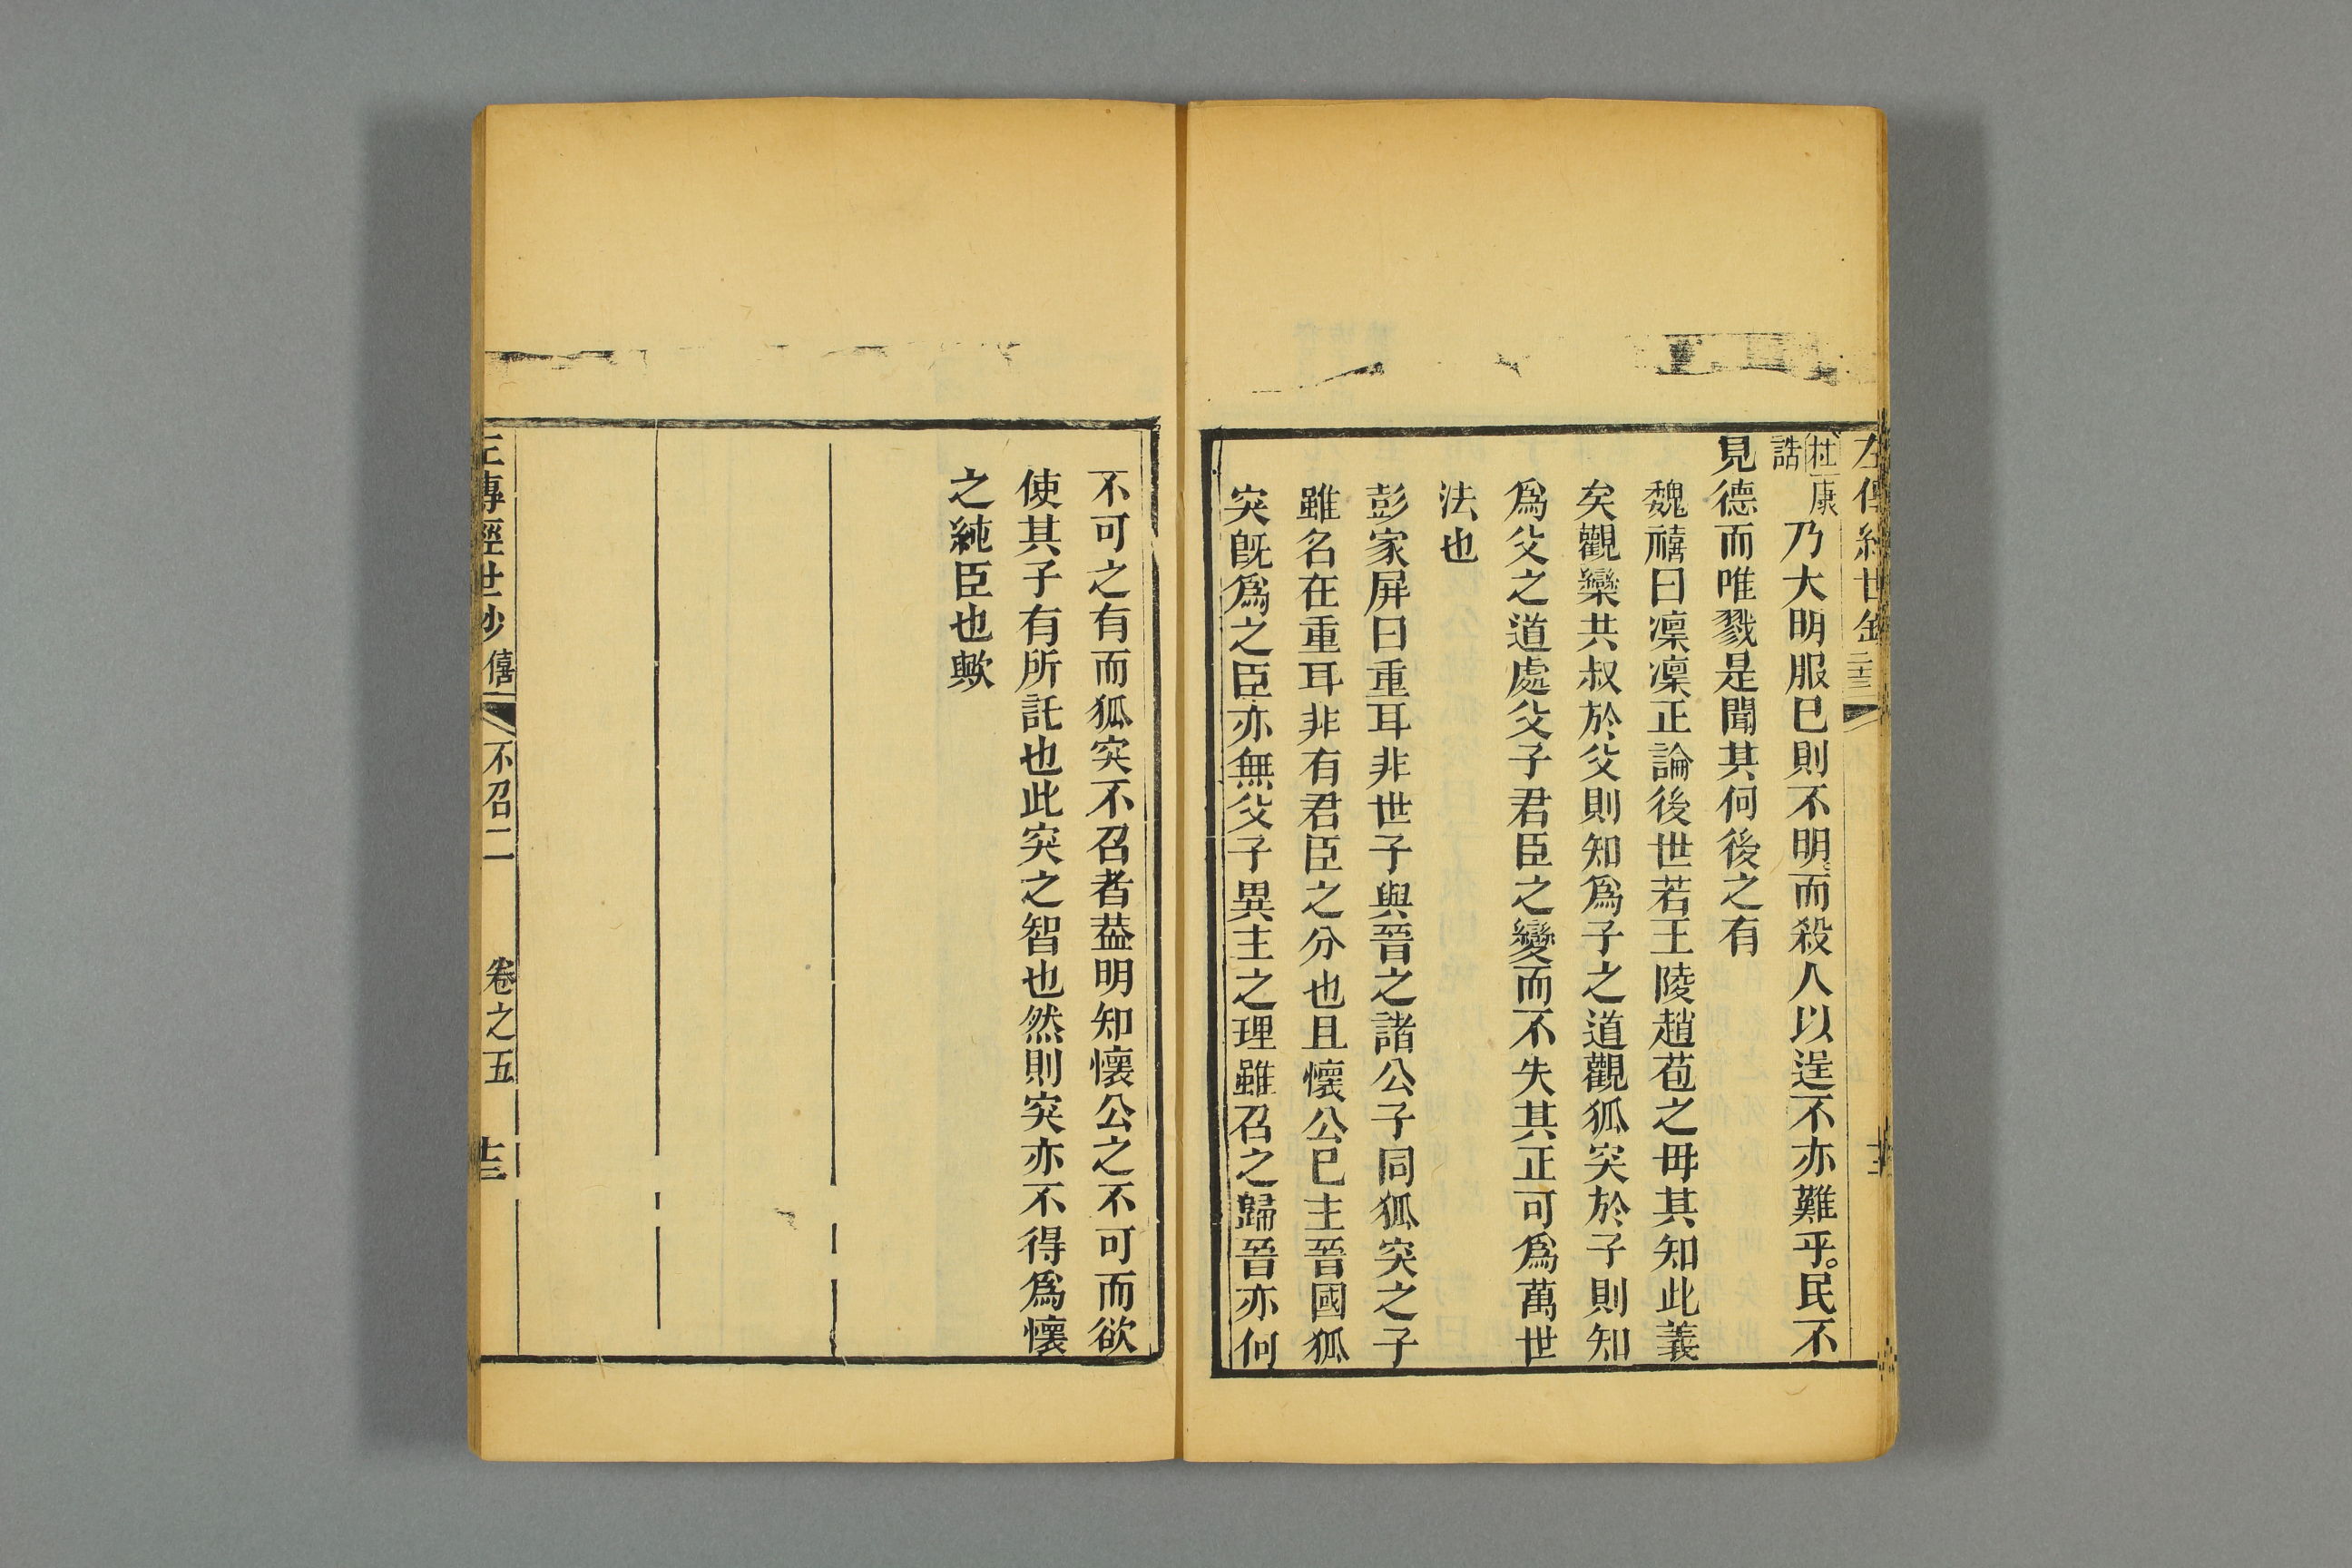 杜康
誥
乃大明服已則不明而殺人以逞不亦難乎。民不
見德而唯戮是聞其何後之有
魏禧曰凜凜正論後世若王陵趙苞之毋其知此義
矣觀欒共叔於父則知爲子之道觀狐突於子則知
爲父之道處父子君臣之變而不失其正可爲萬世
法也
彭家屏曰重耳非世子與晉之諸公子同狐突之子
雖名在重耳非有君臣之分也且懷公已主晉國狐
突旣爲之臣亦無父子異主之理雖召之歸晉亦何
不可之有而狐突不召者葢明知懷公之不可而欲
使其子有所託也此突之智也然則突亦不得爲懷
之純臣也歟
左傳經世鈔 僖 不召二 卷之五 十三